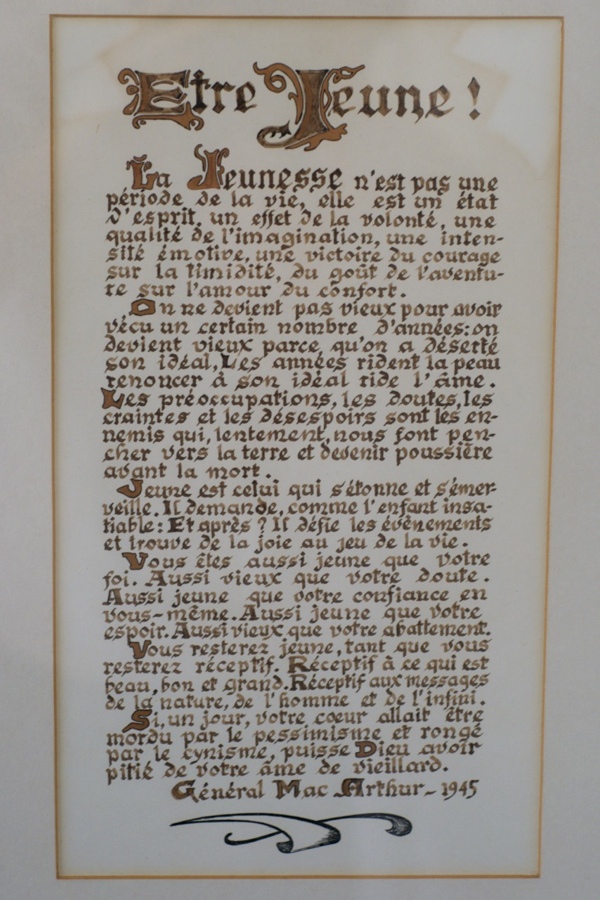 Etre Jeune !
La Jeunesse n'est pas une
période de la vie, elle est un état
d'esprit, un effet de la volonté, une
qualité de l'imagination, une inten-
sité émotive, une victoire du courage
sur la timidité, du goût de l'aventu-
re sur l'amour du confort.
On ne devient pas vieux pour avoir
vécu un certain nombre d'années: on
devient vieux parce qu'on a déserté
son idéal, Les années rident la peau
renoncer à son idéal ride l'âme.
Les préoccupations, les doutes, les
craintes et les désespoirs sont les en-
nemis qui, lentement, nous font pen-
cher vers la terre et devenir poussière
avant la mort.
Jeune est celui qui s'étonne et s'émer-
veille. Il demande, comme l'enfant insa-
tiable: Et après ? Il défie les évènements
et trouve de la joie au jeu de la vie.
Vous êtes aussi jeune que votre
foi. Aussi vieux que votre doute.
Aussi jeune que votre confiance en
vous-même. Aussi jeune que votre
espoir. Aussi vieux que votre abattement.
Vous resterez jeune, tant que vous
resterez réceptif. Réceptif à ce qui est
beau, bon et grand. Réceptif aux messages
de la nature, de l'homme et de l'infini.
Si, un jour, votre cœur allait être
mordu par le pessimisme et rongé
par le cynisme, puisse Dieu avoir
pitié de votre âme de vieillard.
Général Mac Arthur - 1945